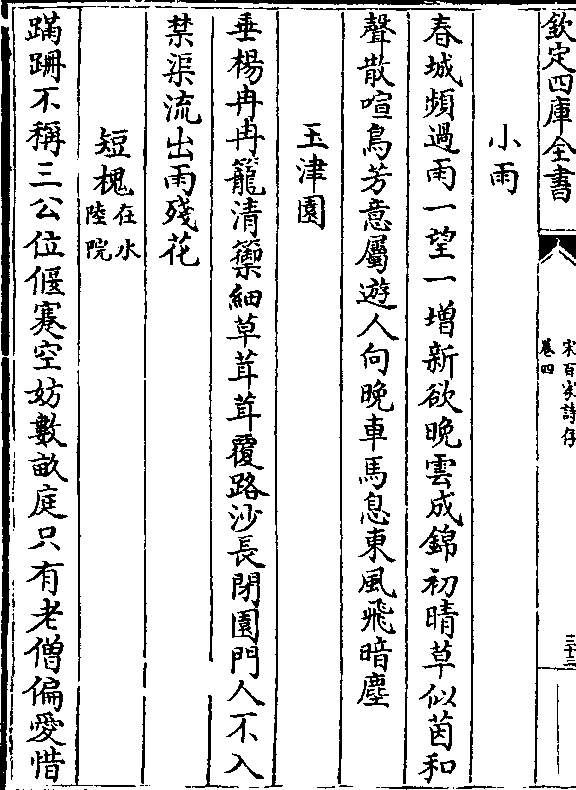 欽定四庫全書
宋百家詩存
卷四
三十三
小雨
春城頻過雨一望一增新欲晚雲成錦初晴草似茵和
聲散喧鳥芳意屬遊人向晚車馬息東風飛暗塵
玉津園
垂楊冉冉籠清籞細草茸茸覆路沙長閉園門人不入
禁渠流出雨殘花
短槐在水
陸院
蹣跚不稱三公位偃蹇空妨數畝庭只有老僧偏愛惜